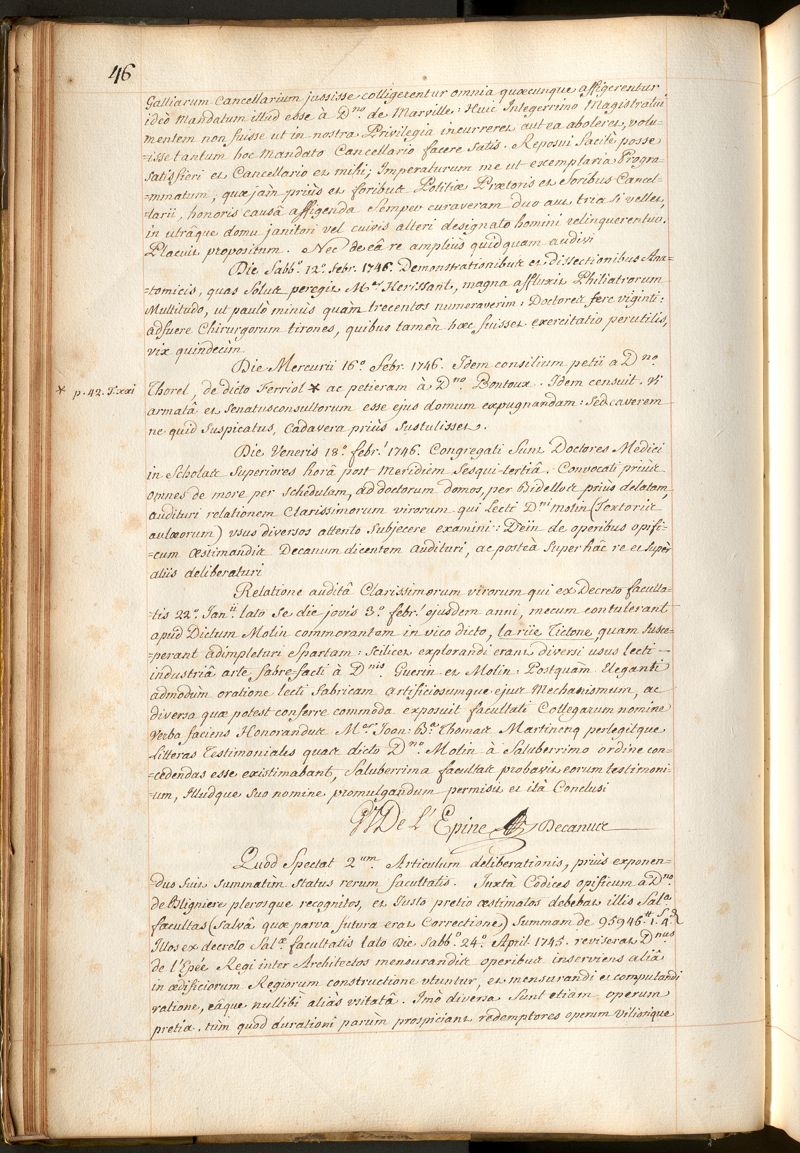 46
Galliarum Cancellarium jussisse colligerentur omnia quæcunque affigerentur
ideò Mandatum illud esse à D.no de Marville: Huic Integerrimo Magistratui
mentem non fuisse ut in nostra Privilegia incurreret aut ea aboleret, volu-
-isse tantum hoc Mandato Cancellario facere satis. Reposui facilè posse
satisfieri et Cancellario et mihi; Imperaturum me ut exemplaria Progra-
-mmatum, quæ jàm priùs et foribus Politiæ Prætoris et foribus Cancel-
-larii, honoris causâ affigenda semper curaveram duo aut tria si vellet,
in utrâque domu janitori vel cuivis alteri designato homini relinquerentur.
Placuit propositum. Nec de eâ re ampliùs quidquam audivi
Die Sabb.o 12.o febr. 1746. Demonstrationibus et dissectionibus Ana-
-tomicis, quas solus peregit M.er Herissant, magna affluxit Philiatrorum
Multitudo, ut paulò minùs quàm trecentos numeraverim: Doctores ferè viginti:
adfuere Chirurgorum tirones, quibus tamèn hæc fuisset exercitatio perutilis,
vix quindecim
Die Mercurii 16.o febr. 1746. Idem consilium petii a D.no
* p. 42. T. xxi
Thorel, de dicto Ferriol * ac petieram à D.no Pontoux. Idem censuit. vi
armatâ et Senatusconsultorum esse ejus domum expugnandam: Sed caverem
ne quid suspicatus, Cadavera priùs sustulisset.
Die Veneris 18.o febr.i 1746. Congregati sunt Doctores Medici
in Scholas Superiores horâ post meridiem sesqui-tertiâ. Convocati priùs
omnes de more per schedulam, ad doctorum domos, per Bidellos priùs delatam,
audituri relationem Clarissimorum virorum qui Lecti D.ni Molin (Textoris
aulæorum) usus diversos attento subjecere examini: Dein de operibus opifi-
-cum æstimandis Decanum dicentem audituri, ac posteà super hâc re et supèr
aliis deliberaturi
Relatione auditâ Clarissimorum virorum qui ex Decreto faculta-
-tis 22.o Jan.ii lato se die jovis 3.o febr.i ejusdem anni, mecum contulerant
apud Dictum Molin commorantem in vico dicto, la rüe Tictone, quam susce-
-perant adimpleturi Spartam: scilicet explorandi erant diversi usus lecti
industriâ arte fabre-facti à D.nis Guerin et Molin: Postquàm Eleganti
admodùm oratione lecti fabricam artificiosumque ejus Mechanismum, ac
diversa quæ potest conferre commoda exposuit facultati Collegarum nomine
verba faciens Honorandus M.er Joan: B.ta Thomas Martinenq perlegitque
Litteras Testimoniales quas dicto D.no Molin à Saluberrimo ordine con-
-cedendas esse existimabant, Saluberrima facultas probavit eorum testimoni-
-um, Illudque suo nomine promulgandum permisit et ità Conclusi
GJ De L'Epine Decanus
Quod Spectat 2.um Articulum deliberationis, priùs exponen-
dus fuit summatim status rerum facultatis. Juxtà Codices opificum à D.no
de Bligniere plerosque recognitos, et justo pretio æstimatos debebat illis Sal.a
facultas (Salvâ quæ parva futura erat Correctione) Summam de 95946.tt 1.s 4.d
Illos ex decreto Sal.æ facultatis lato Die Sabb.o 24.o April. 1745. reviserat D.nus
de l'Epée Regi inter Architectos mensurandis operibus inserviens aliâ
in ædificiorum Regiorum constructione utuntur, et mensurandi et computandi
ratione, eâque nullibi aliàs usitatâ. Imò diversa sunt etiam operum
pretia. tùm quod durationi parùm prospiciant redemptores operum viliorique